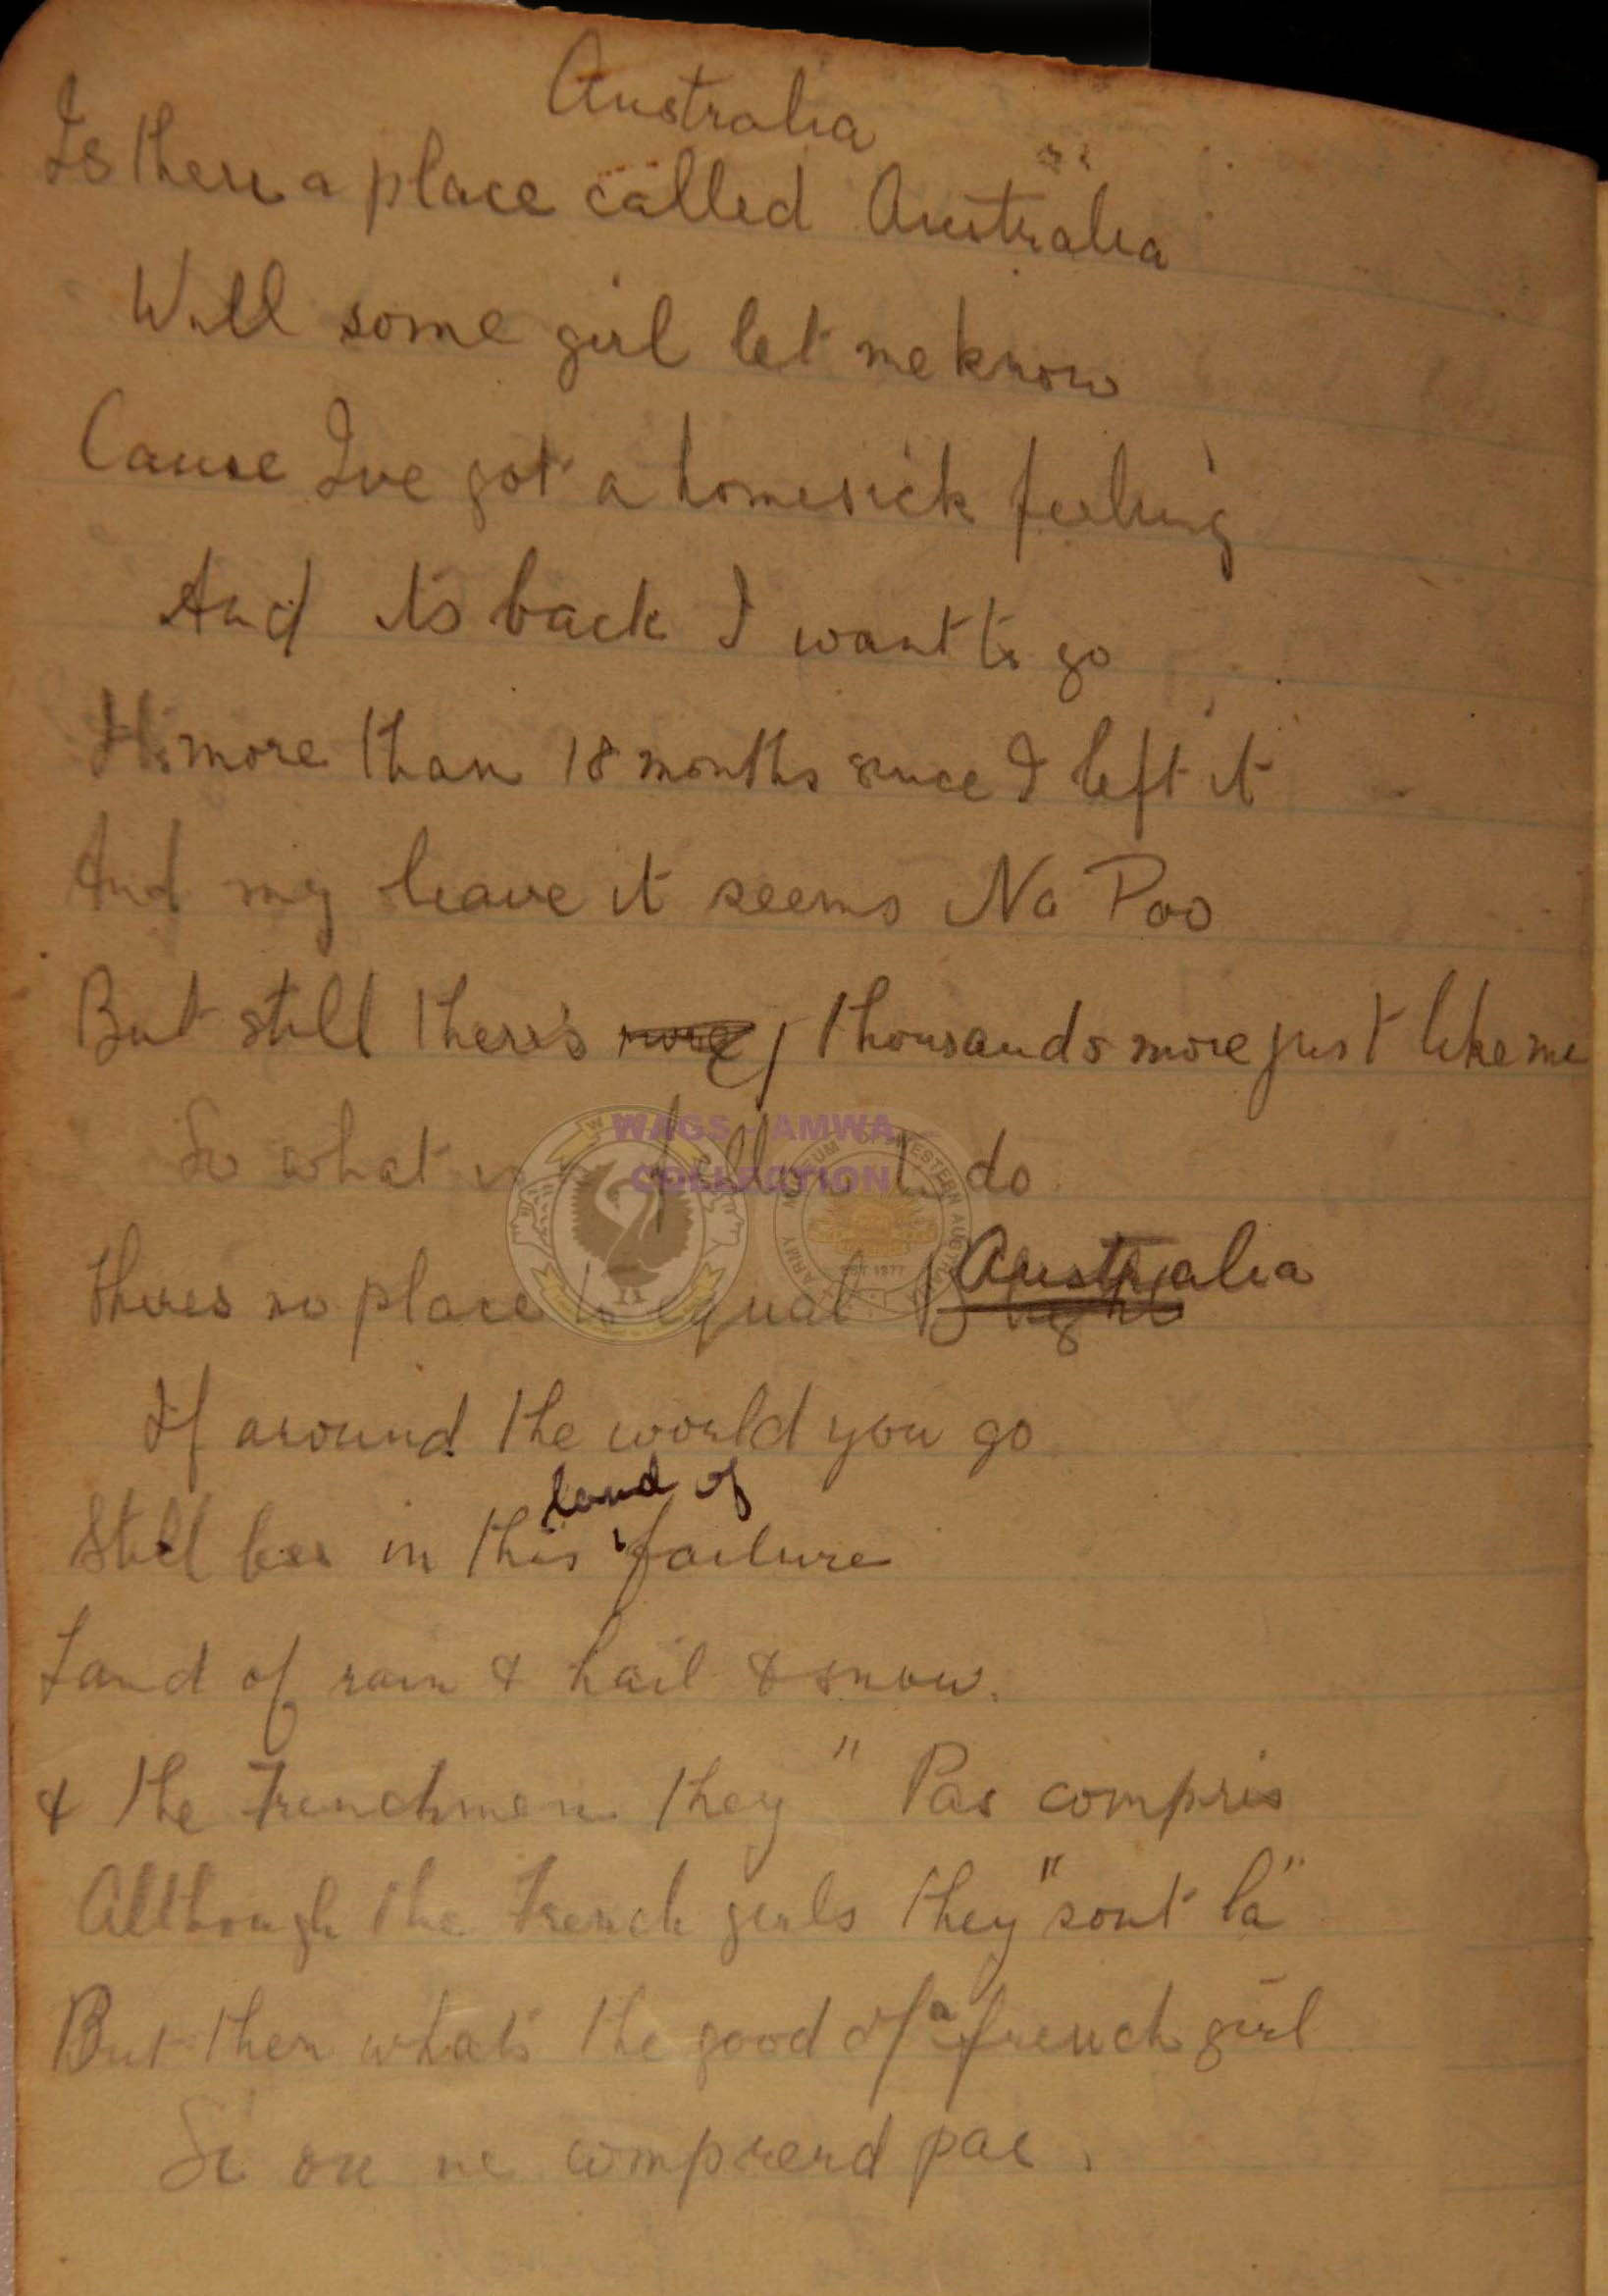 Australia
Is there a place called Australia
Will some girl let me know
Cause Ive got a homesick feeling
And its back I want to go
Its more than 18 months since I left it
And my leave it seems Na Poo
But still there's more thousands more just like me
So what fellow to do
Theres no place to equal Blighty Australia
If around the world you go
land of
Still in this failure
Land of rain & hail & snow.
& the Frenchmen they " Pas compris
Although the French girls they "sont la"
But then whats the good of a french girl
Si on ne comprend pas.
WAGS - AMWA
COLLECTION